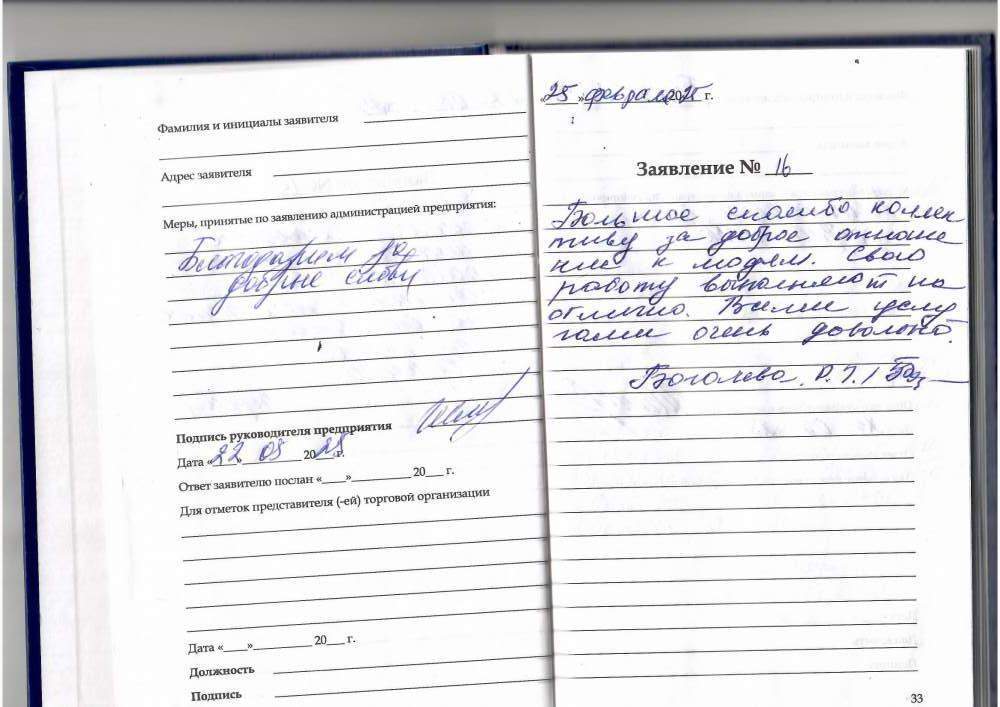 Фамилия и инициалы заявителя
Адрес заявителя
Меры, принятые по заявлению администрацией предприятия:
Благодарим за
добрые слова
Подпись руководителя предприятия
Дата «22 20 г.
Ответ заявителю послан «____»__________ 20___ г.
Для отметок представителя (-ей) торговой организации
Дата «____»__________ 20___ г.
Должность
Подпись
«25» февраля 2025 г.
Заявление № 16
Большое спасибо коллек
тиву за доброе отноше
ние к людям. Свою
работу выполняют на
отлично. Всеми услу
гами очень довольна.
33